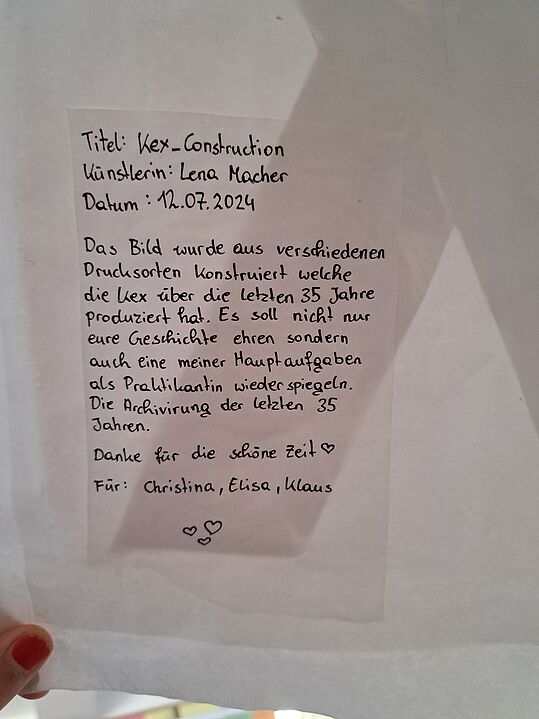 Titel: Kex-Construction
Künstlerin: Lena Macher
Datum: 12.07.2024
Das Bild wurde aus verschiedenen
Drucksorten konstruiert welche
die Kex über die letzten 35 Jahre
produziert hat. Es soll nicht nur
eure Geschichte ehren sondern
auch eine meiner Hauptaufgaben
als Praktikantin wiederspiegeln.
Die Archivirung der letzten 35
Jahren.
Danke für die schöne Zeit ♡
Für: Christina, Elisa, Klaus